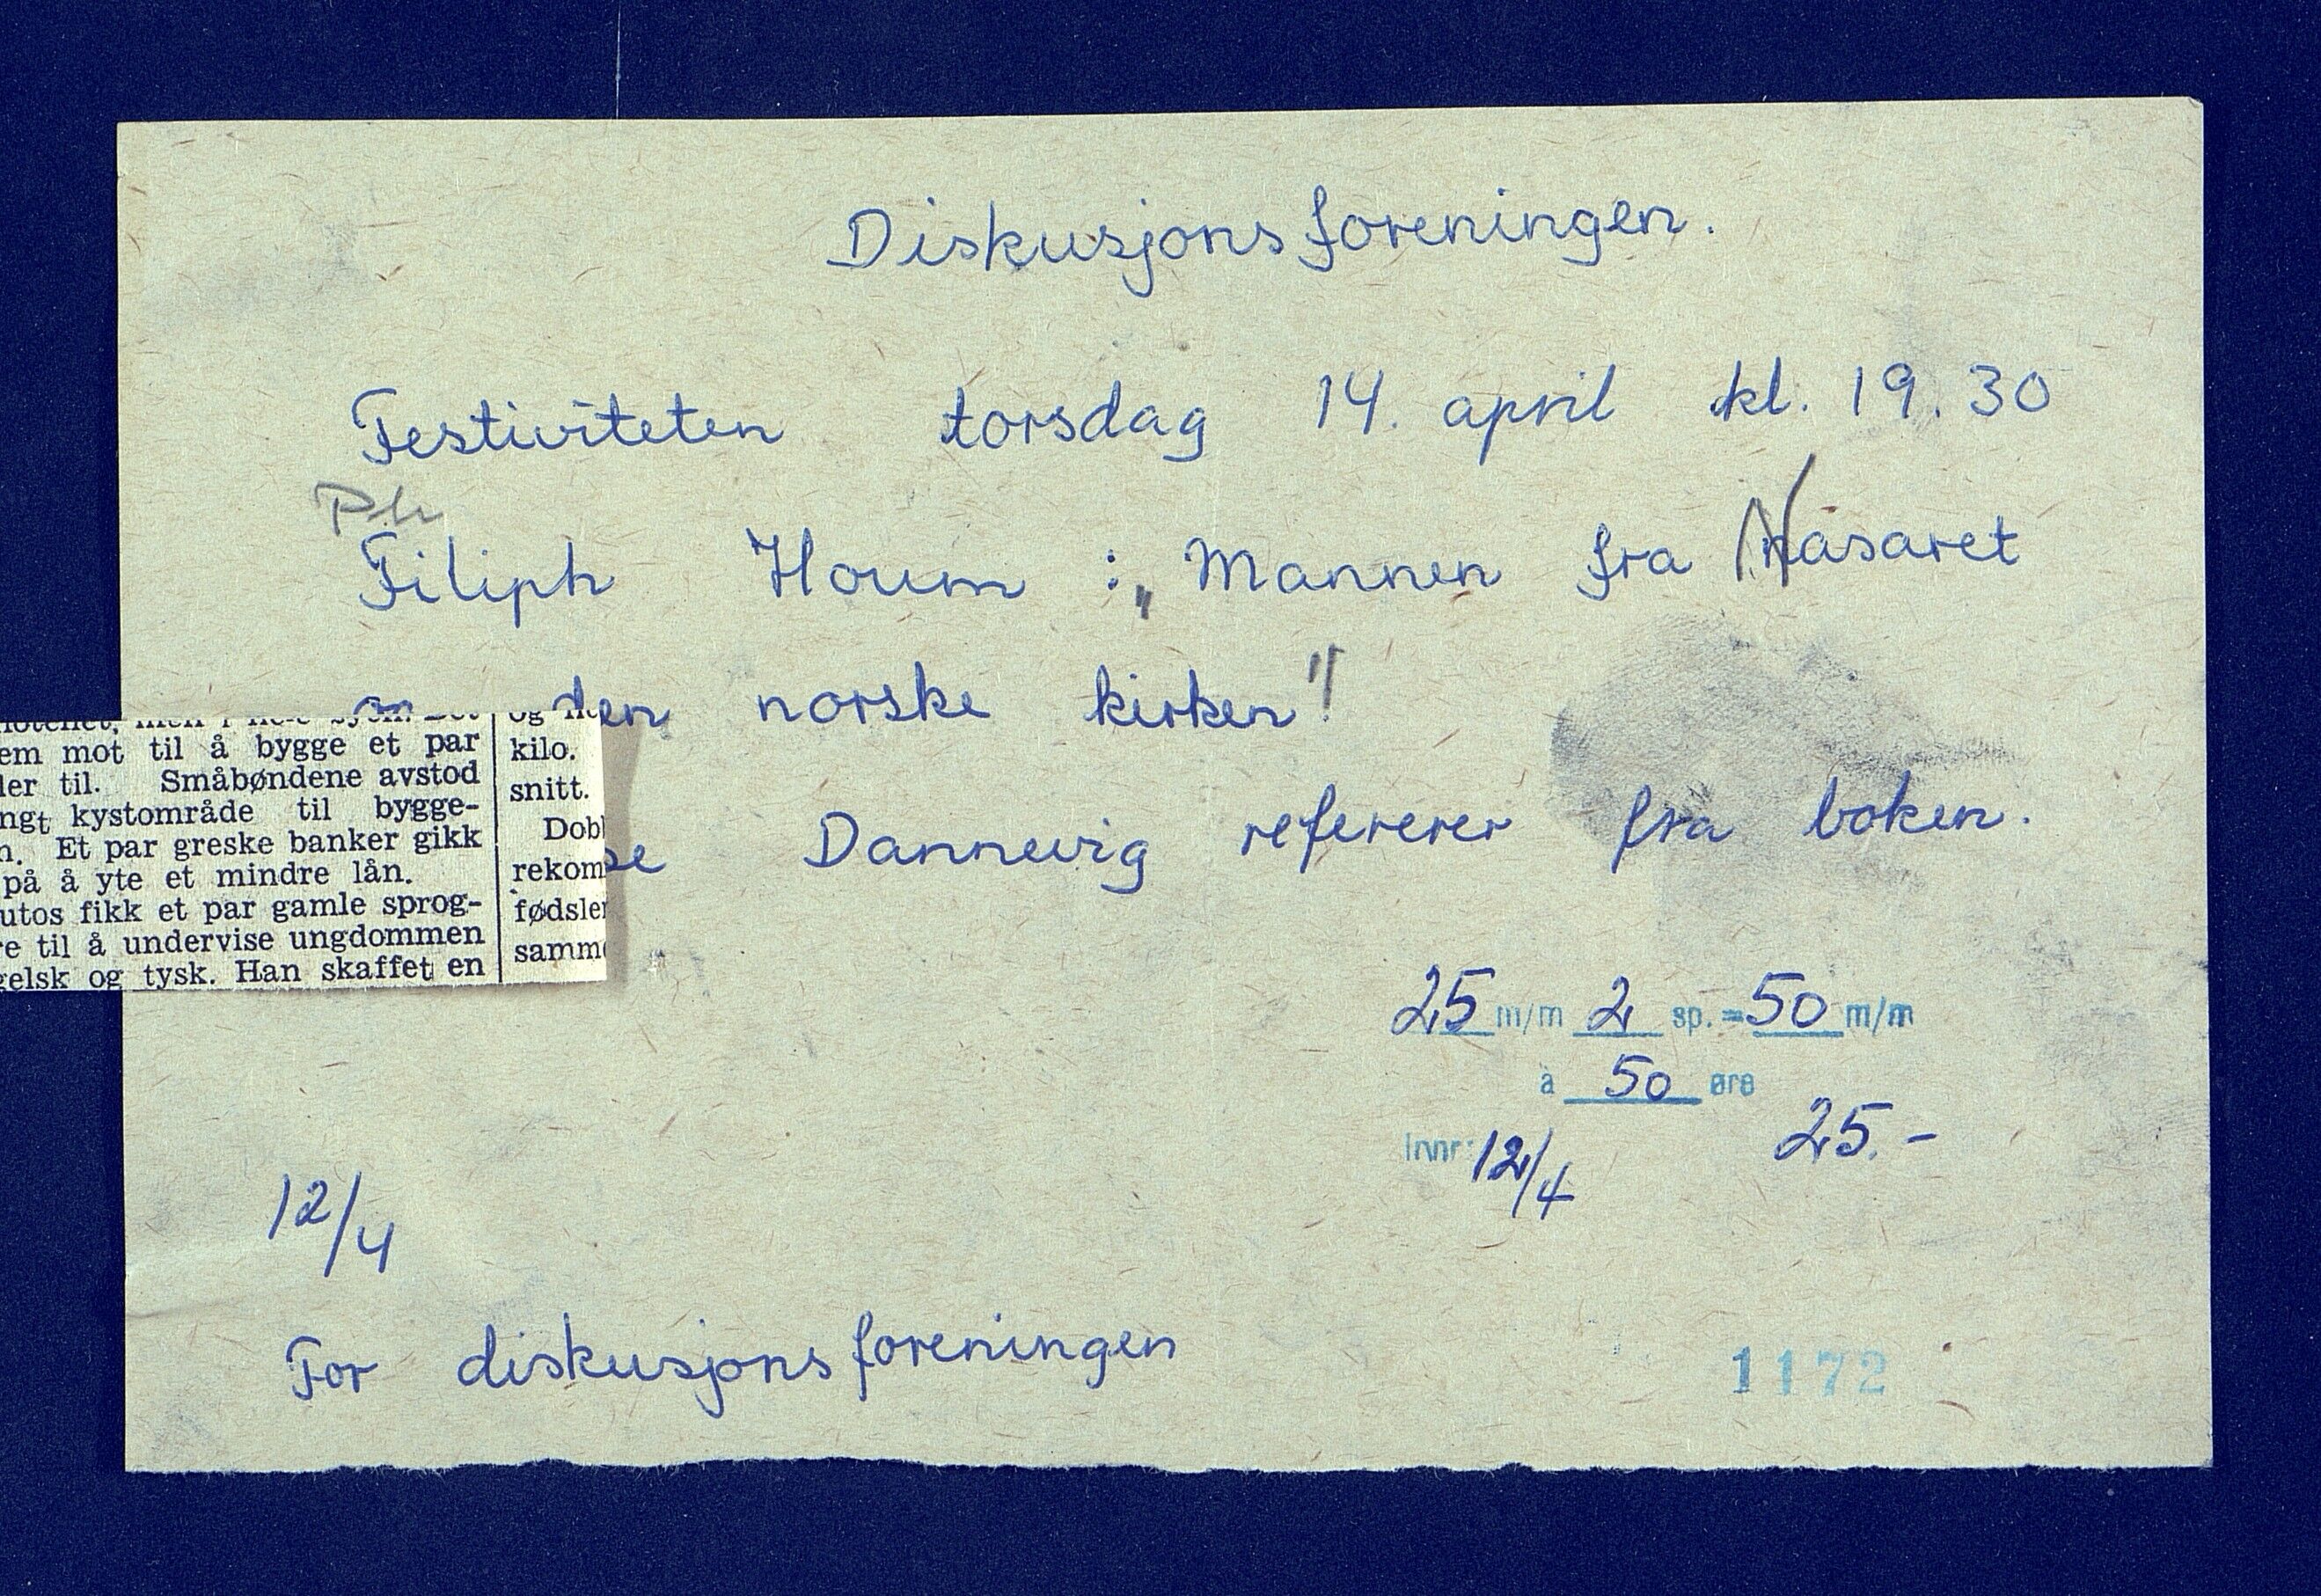 Diskusjonsforeningen.
Festiviteten torsdag 14. april kl. 19.30
Ph
Filiph Houm : „Mannen fra Nasaret
den norske kirken"!
Dannevig refererer fra boken.
mot til å bygge et par
til. Småbøndene avstod
kystområde til bygge-
Et par greske banker gikk
på å yte et mindre lån.
fikk et par gamle sprog-
til å undervise ungdommen
og tysk. Han skaffet en
kilo.
snitt.
25 m/m 2 sp. = 50 m/m
à 50 øre
Innr. 12/4 25.-
12/4
For diskusjonsforeningen
1172